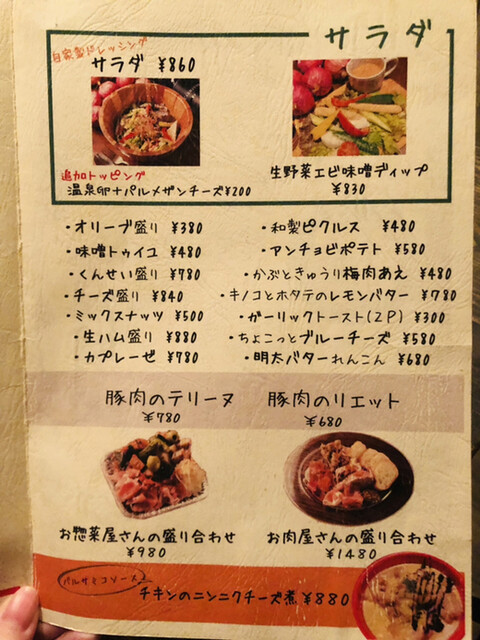 サラダ
自家製ドレッシング
サラダ ¥860
追加トッピング
温泉卵+パルメザンチーズ¥200
生野菜エビ味噌ディップ
¥830
・オリーブ盛り ¥380
・味噌トゥイユ ¥480
・くんせい盛り ¥780
・チーズ盛り ¥840
・ミックスナッツ ¥500
・生ハム盛り ¥880
・カプレーゼ ¥780
・和製ピクルス ¥480
・アンチョビポテト ¥580
・かぶときゅうり梅肉あえ ¥480
・キノコとホタテのレモンバター ¥780
・ガーリックトースト(2P) ¥300
・ちょこっとブルーチーズ ¥580
・明太バターれんこん ¥680
豚肉のテリーヌ
¥780
豚肉のリエット
¥680
お惣菜屋さんの盛り合わせ
¥980
お肉屋さんの盛り合わせ
¥1480
バルサミコソース
チキンのニンニクチーズ煮 ¥880